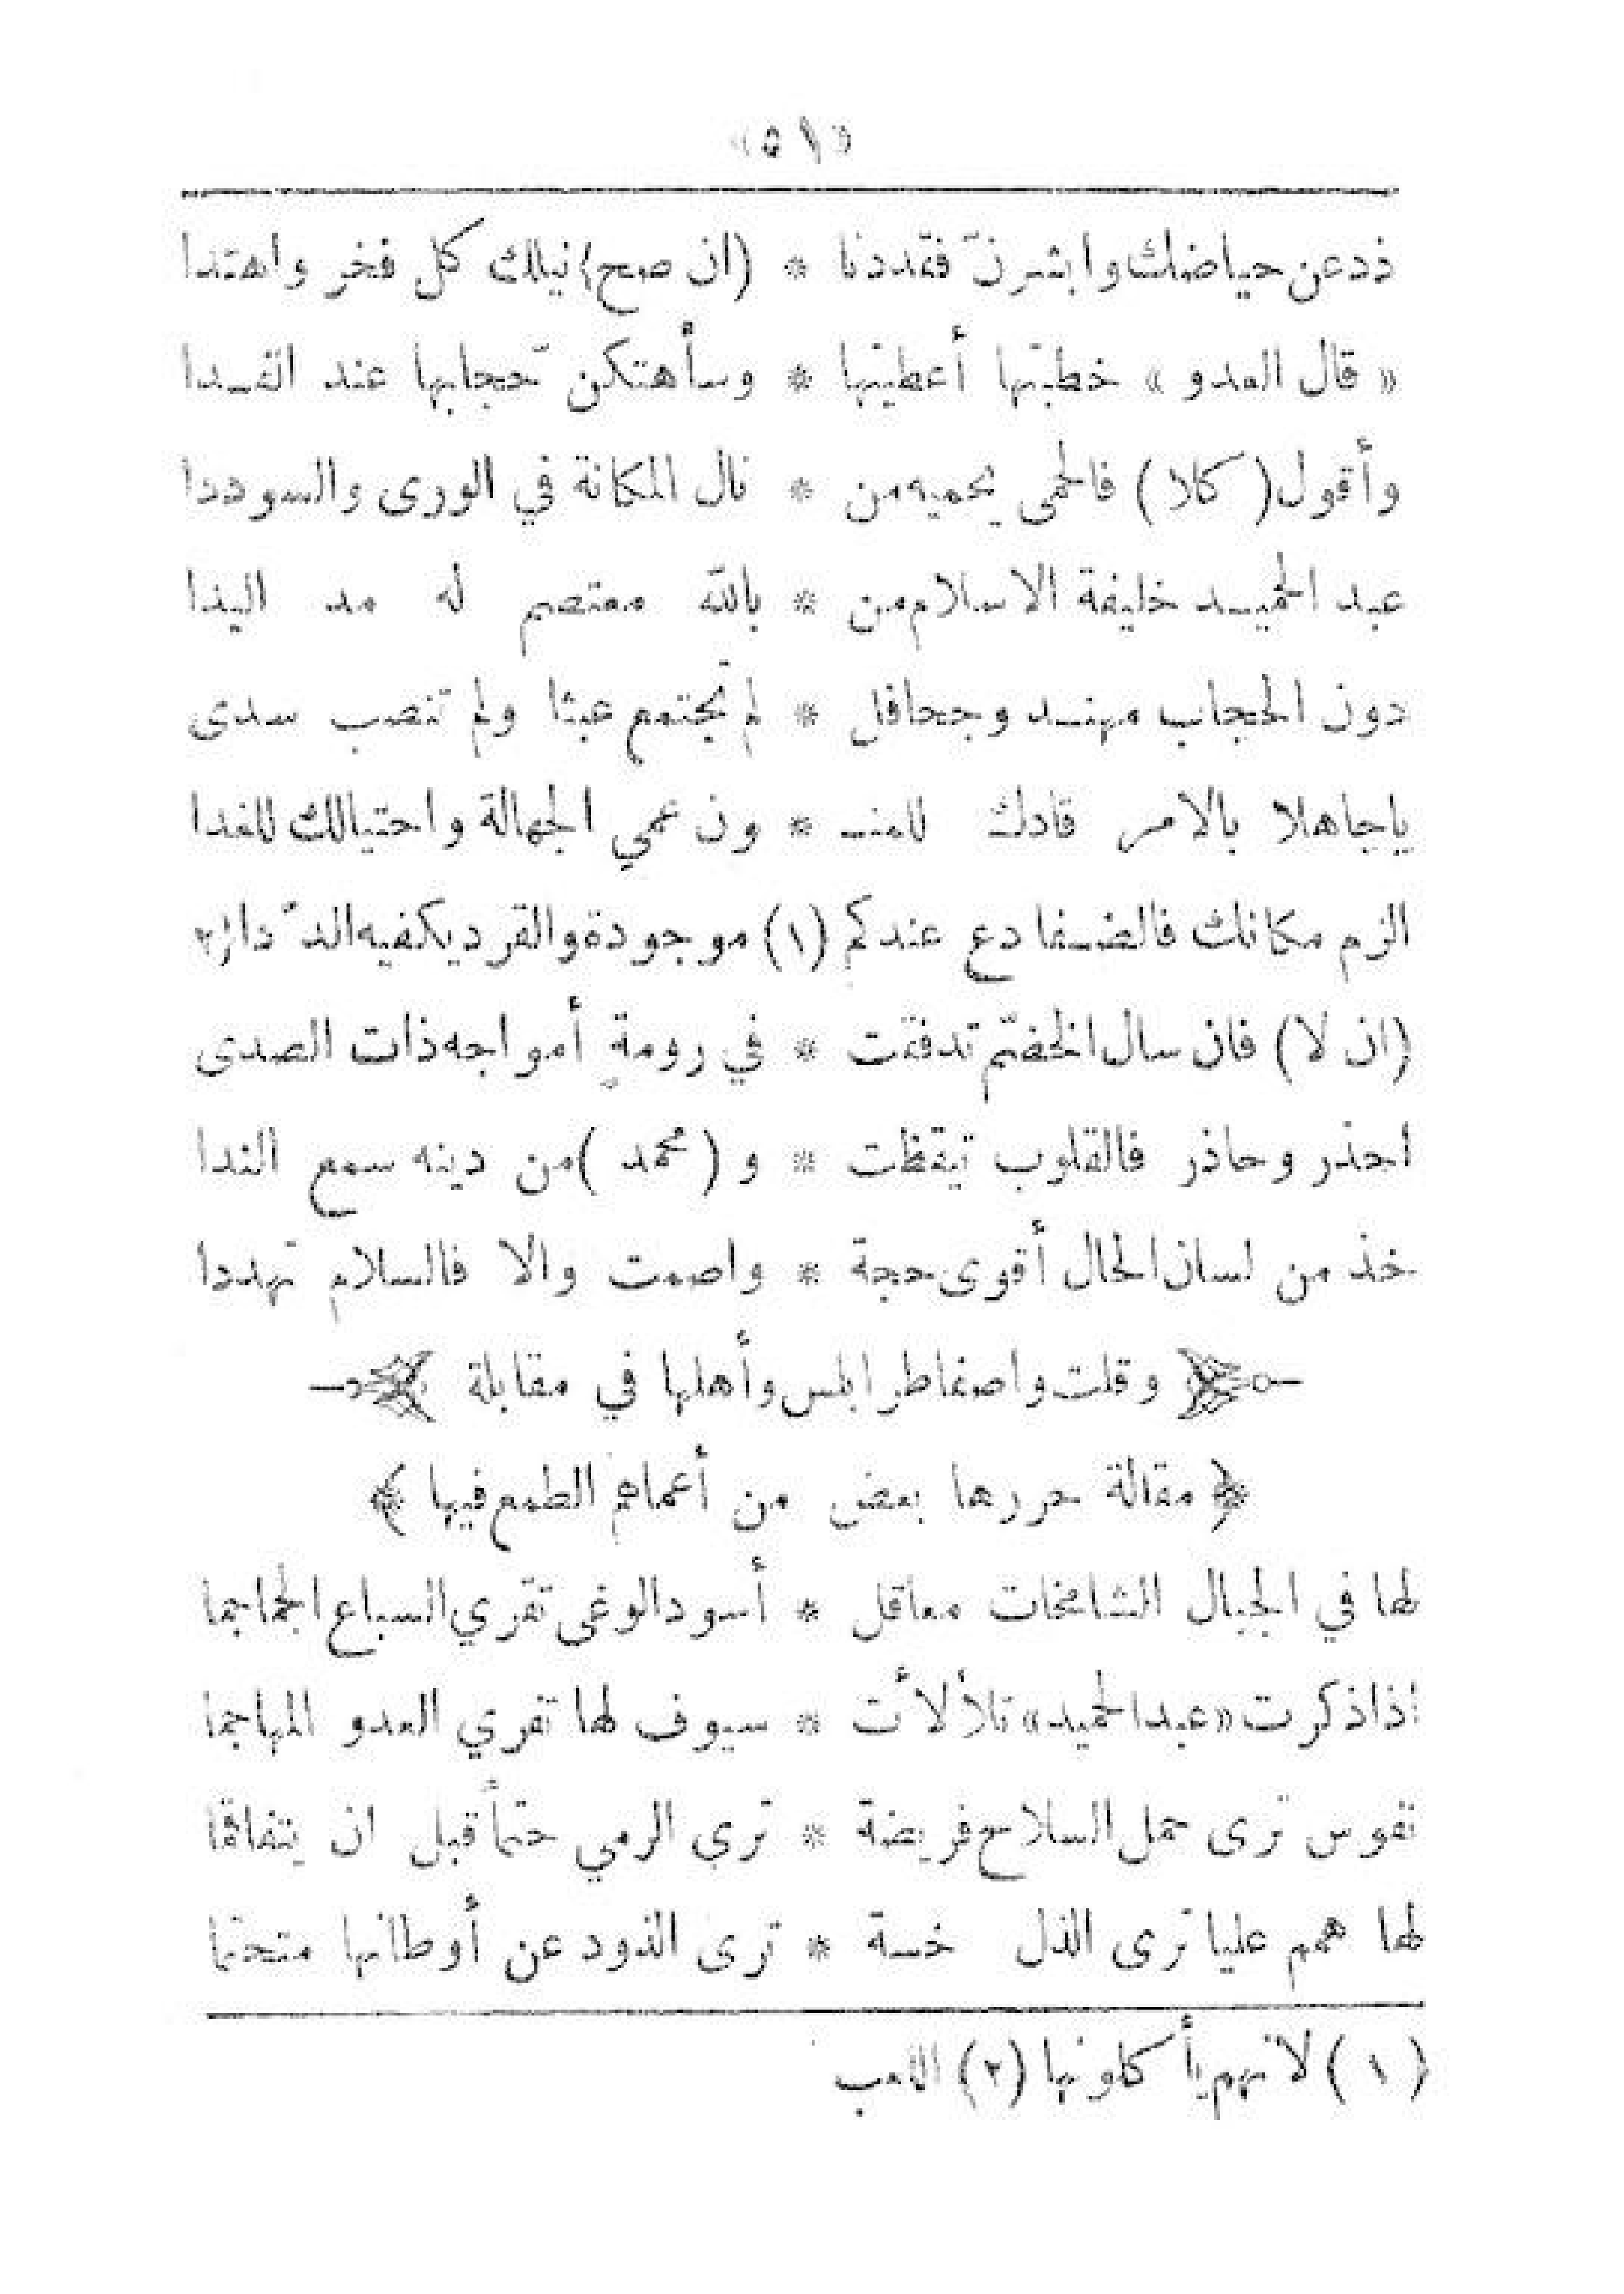 «٥١»
ذد عن حياضك وابشرنّ فقد دنا * (ان صح) نيلك كل فخر واهتدا
« قال العدو » خطبتها أعطيتها * وسأهتكن حجابها عند الغدا
وأقول ( كلا ) فالحمى يحميه من * نال المكانة في الورى والسوددا
عبد الحميد خليفة الاسلام من * بالله معتصم له مد اليدا
دون الحجاب مهند وجحافل * لم تجتمع عبثا ولم تنصب سدى
ياجاهلا بالامر قادك للمنـ * ـون عمي الجهالة واحتيالك للغدا
الزم مكانك فالضفادع عندكم (١) موجودة والقرد يكفيه الدّدا (٢
(ان لا) فان سال الخضمّ تدفقت * في رومةٍ أمواجه ذات الصدى
أحذر وحاذر فالقلوب تيقظت * و ( محمد ) من دينه سمع الندا
خذ من لسان الحال أقوى حجة * واصمت والا فالسلام تهددا
﴿ وقلت واصفا طرابلس وأهلها في مقابلة ﴾
﴿ مقالة حررها بعض من أعماهم الطمع فيها ﴾
لها في الجبال الشامخات معاقل * أسود الوغى تقري السباع الجماجما
اذا ذكرت «عبد الحميد» تلألأت * سيوف لها تفري العدو المهاجما
نفوس ترى حمل السلاح فريضة * ترى الرمي حتماً قبل ان يتفاقما
لها همم عليا ترى الذل خسة * ترى الذود عن أوطانها متحتما
( ١ ) لانهم يأكلونها (٢) اللعب